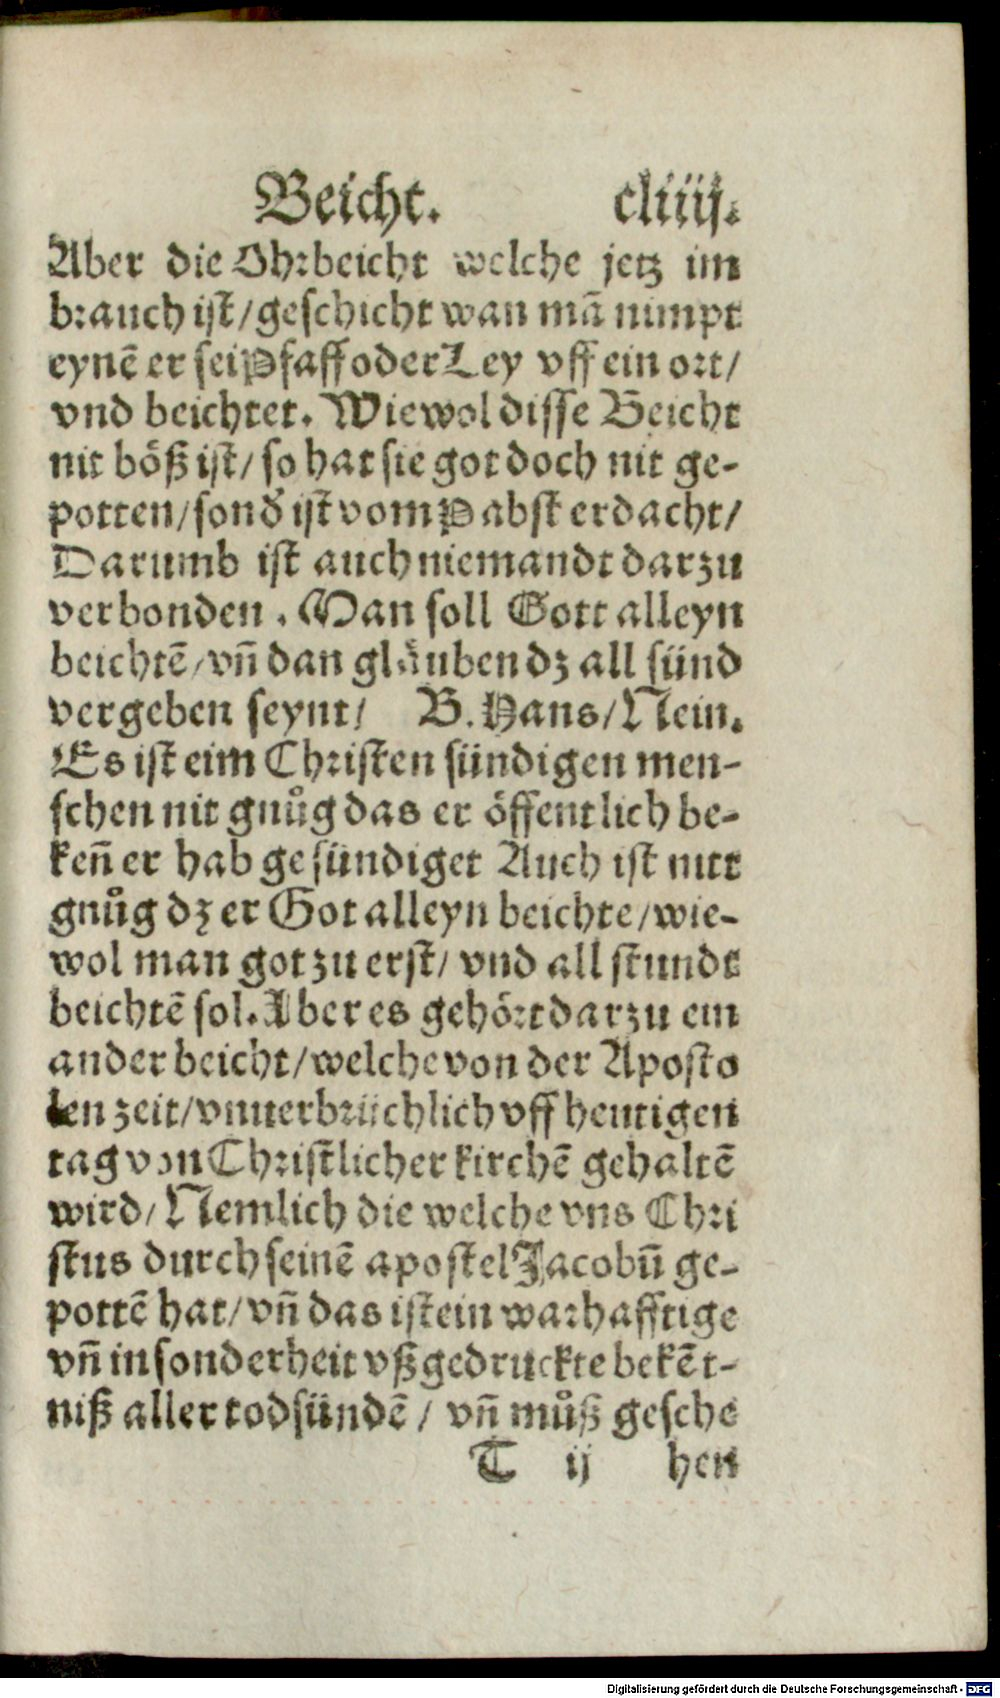 Beicht. cliiij.
Aber die Ohrbeicht welche jetz im
brauch ist/geschicht wan mā nimpt
eynē er sei Pfaff oder Ley vff ein ort/
vnd beichtet. Wiewol disse Beicht
nit böß ist/ so hat sie got doch nit ge-
potten/sond̄ ist vom Pabst erdacht/
Darumb ist auch niemandt darzu
verbonden. Man soll Gott alleyn
beichtē/vñ dan gläuben dz all sünd
vergeben seynt/ B. Hans/Nein.
Es ist eim Christen sündigen men-
schen nit gnůg das er öffentlich be-
keñ er hab gesündiget Auch ist nitt
gnůg dz er Got alleyn beichte/wie-
wol man got zu erst/ vnd all stundt
beichtē sol. Aber es gehört darzu ein
ander beicht/welche von der Aposto
len zeit/vnuerbrüchlich vff heutigen
tag von Christlicher kirchē gehaltē
wird/Nemlich die welche vns Chri
stus durch seinē apostel Jacobū ge-
pottē hat/vñ das ist ein warhafftige
vñ in sonderheit vßgedruckte bekēt-
niß aller todsündē/ vñ můß gesche
T ij hen
Digitalisierung gefördert durch die Deutsche Forschungsgemeinschaft - DFG